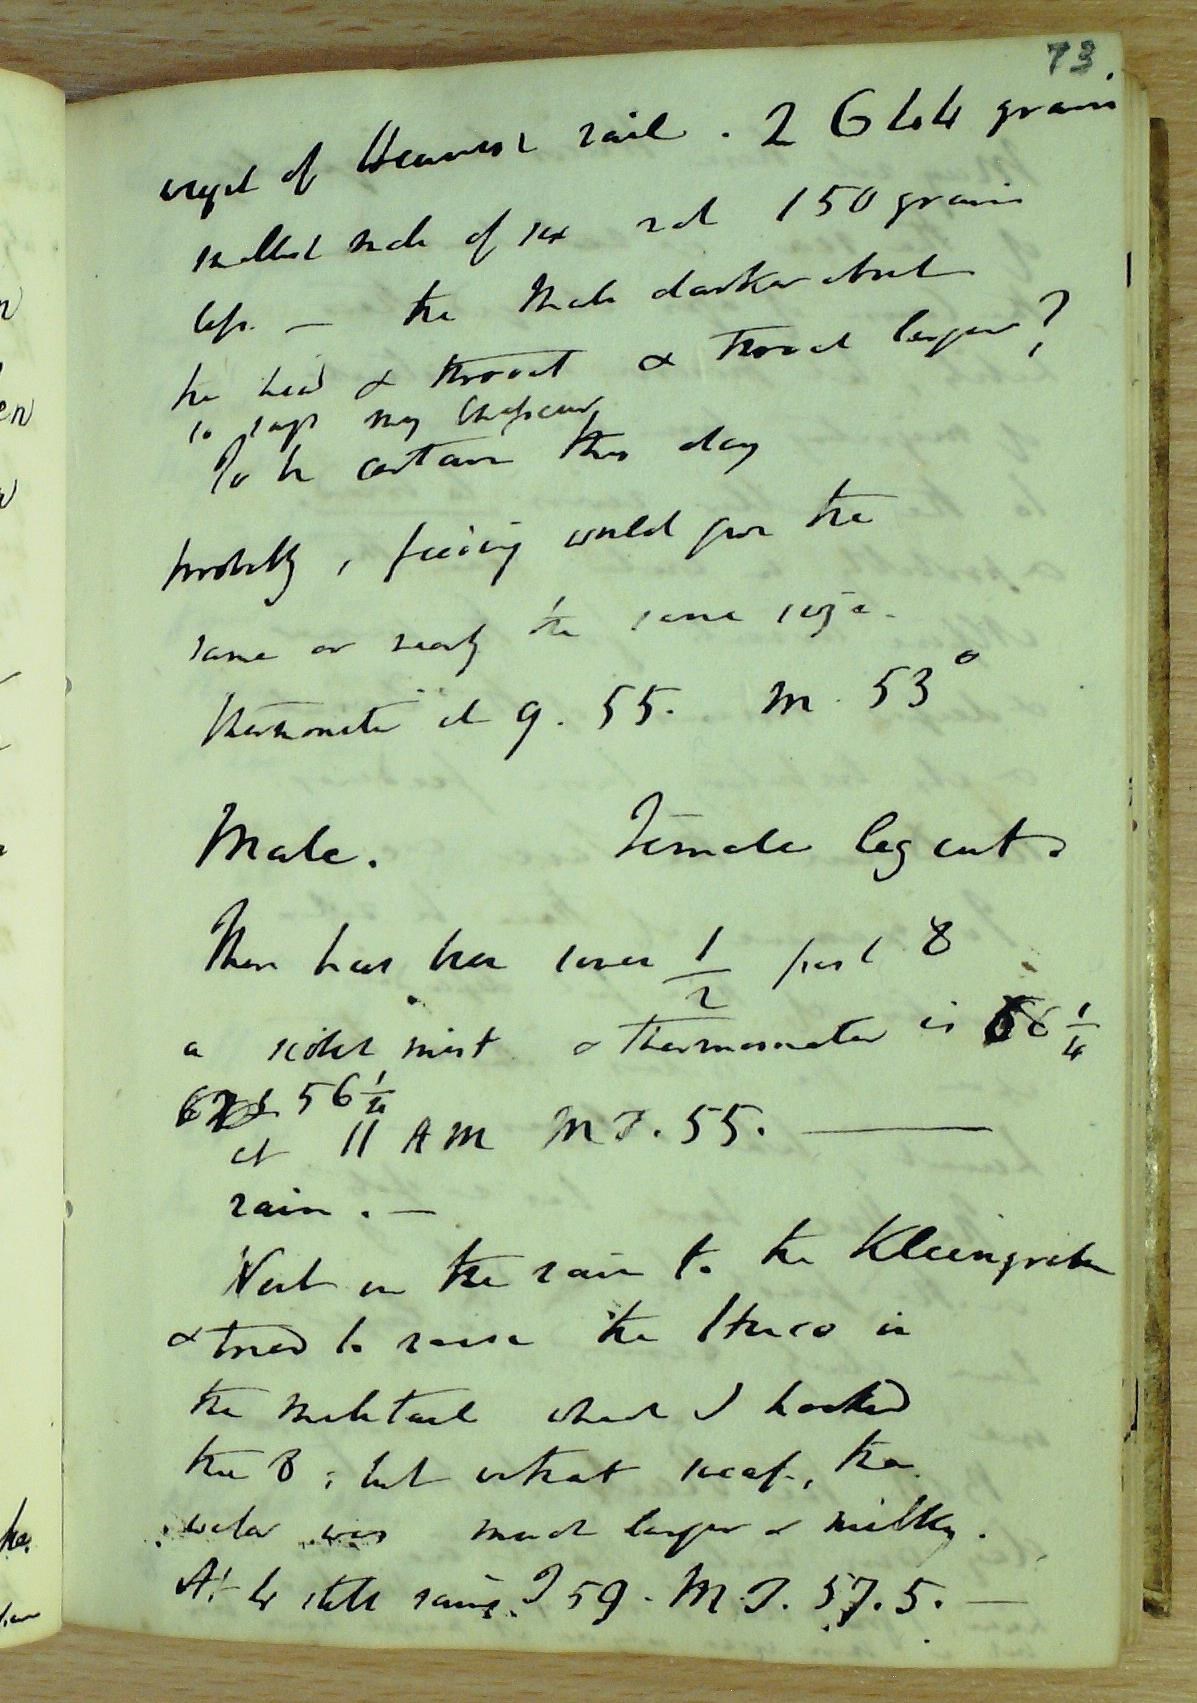 73.
weight of Heaviest rail. 2644 grains
smallest male of six not 150 grains
less. — the Male darker about
the head & throat & throat larger?
so says my
To be certain this day
probably, feeding would give the
same or nearly the same size.
thermometer at 9. 55. M. 53°
Male. Female leg cut.
There has been since 1/2 past 8
a scotch mist & thermometer is 56 1/4
56 1/4
at 11 AM M T. 55. —
rain. —
Went in the rain to the Kleingraben
& tried to raise the Huco in
the milltail where I hooked
the 8; but without success, the
water was much larger & milky.
At 4 still raining. T 59. M. T. 57.5. —